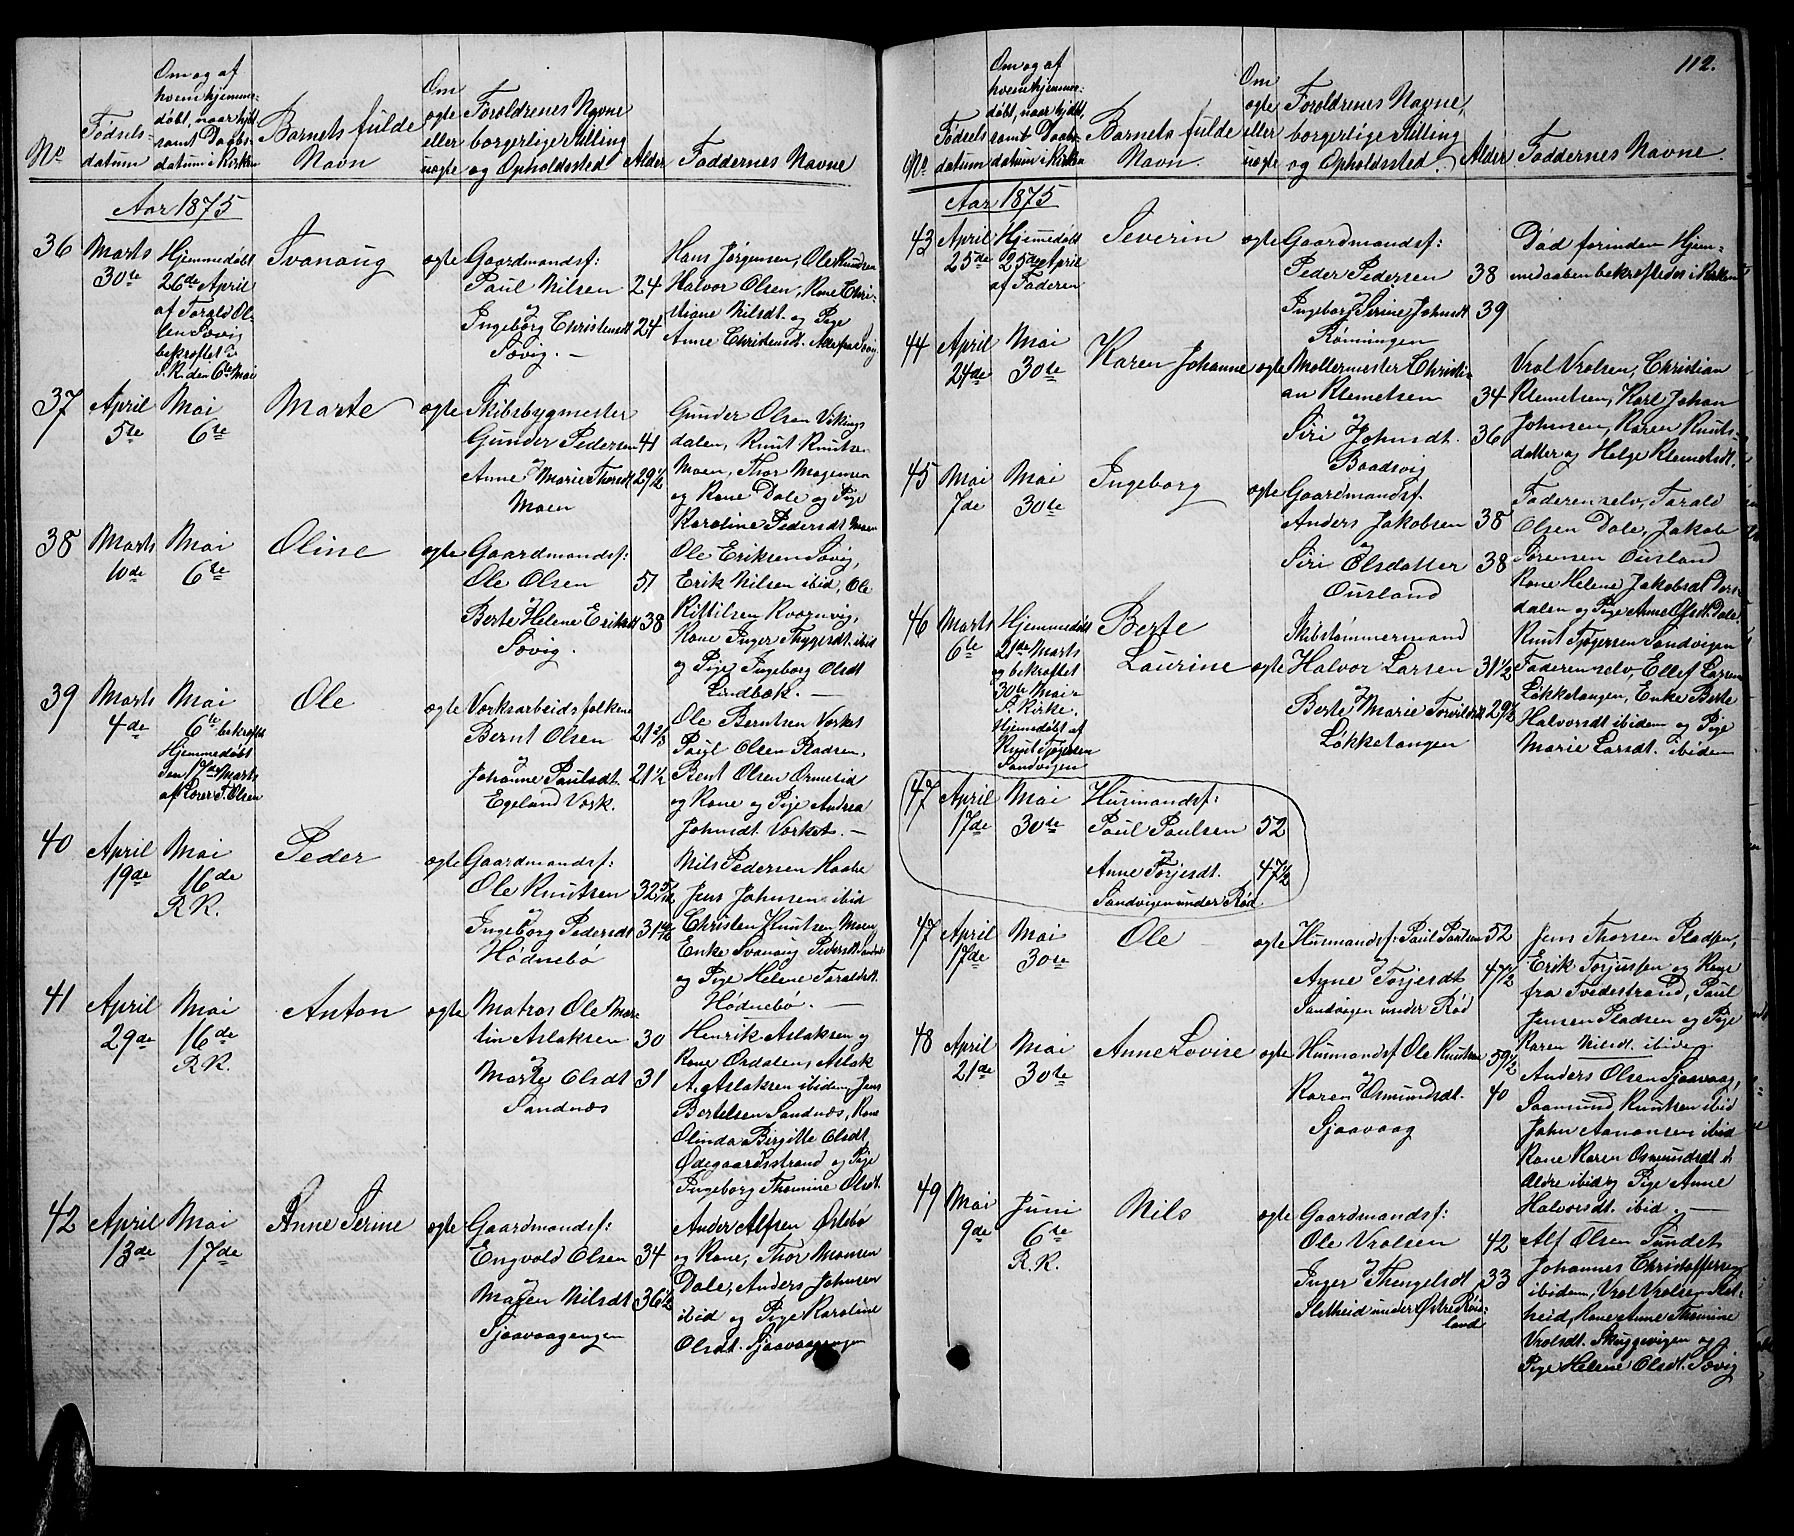 112.
No
Fødsels-
datum
Om og af
hvem hjemme-
døbt, naar hjdt,
samt Daabs-
datum i Kirken
Barnets fulde
Navn
Om
ægte
eller
uægte
Forældrenes Navne
borgerlige Stilling
og Opholdssted
Alder
Faddernes Navne
Aar 1875
36
Marts
30te
Hjemmedøbt
26de April
af Torald Ol-
sen Søvig
bekræftet i
S. K. den 6te Mai
Svanaug
ægte
Gaardmandsf:
Paul Nilsen 24
og
Ingeborg Christensdt 24
Søvig. —
Hans Jørgensen, Ole Knudsen
Halvor Olsen, Kone Chri-
stiane Nilsdt. og Pige
Anne Christensdt. Alle fra Søvig
37
April
5te
Mai
6te
Marte
ægte
Skibsbygmester
Gunder Pedersen 41
og
Anne Marie Thorsdt 29½
Moen
Gunder Olsen Vikings
dalen, Knut Knutsen
Moen, Thor Mogensen
og Kone Dale og Pige
Karoline Pedersdt Moen
38
Marts
10de
Mai
6te
Oline
ægte
Gaardmandsf:
Ole Olsen 51
og
Berte Helene Eriksdt 38
Søvig.
Ole Eriksen Søvig,
Erik Nilsen ibid, Ole
Kittilsen Kvagnvig,
Kone Inger Thygesdt. ibid
og Pige Ingeborg Olsdt
Lindbæk. —
39
Marts
4de
Mai
6te bekræftet
Hjemmedøbt
den 17de Marts
af Lærer T. Olsen
Ole
ægte
Værksarbeidsfolkene
Bernt Olsen 21⅔
og
Johanne Paulsdt. 21½
Egeland Værk.
Ole Berntsen Værket
Paul Olsen Pladsen,
Bent Olsen Ormelid
og Kone og Pige Andrea
Johnsdt. Værket. —
40
April
19de
Mai
16de
R.K.
Peder
ægte
Gaardmandsf:
Ole Knutsen 32
og
Ingeborg Pedersdt 31
Hødnebø
Nils Pedersen Haabe
Jens Johnsen ibid
Christen Knutsen Moen,
Enke Svanaug Pedersdt
og Pige Helene Taraldsdt.
Hødnebø. —
41
April
29de
Mai
16de
R.K.
Anton
ægte
Matros Ole Mar-
tin Aslaksen 30
og
Marte Olsdt 31
Sandnæs
Henrik Aslaksen og
Kone Ørdalen, Aslak
A. Aslaksen ibidem, Jens
Bertelsen Sandnæs, Kone
Olinda Birgitte Olsdt.
Ødegaardsstrand og Pige
Ingeborg Thomine Olsdt.
42
April
13de
Mai
17de
Anne Serine
ægte
Gaardmandsf:
Engvold Olsen 34
og
Maren Nilsdt 36½
Sjaavaagengen
Ander Alfsen Ørlebø
og Kone, Thor Monsen
Dale, Anders Johnsen
ibid og Pige Karoline
Olsdt. Sjaavaagengen
No
Fødsels
datum
Om og af
hvem hjemme-
døbt, naar hjdt,
samt Daabs-
datum i Kirken
Barnets fulde
Navn
Om
ægte
eller
uægte
Forældrenes Navne,
borgerlige Stilling
og Opholdssted
Alder
Faddernes Navne.
Aar 1875
43
April
25de
Hjemmedøbt
25de April
af Faderen
Severin
ægte
Gaardmandsf:
Peder Pedersen 38
og
Ingeborg Serine Johnsdt 39
Rønningen
Død forinden Hjem-
medaaben bekræftedes i Kirken
44
April
24de
Mai
30te
Karen Johanne
ægte
Møllermester Christi-
an Klemetsen 34
og
Siri Johnsdt. 36
Baadsvig
Vrol Vrolsen, Christian
Klemetsen, Karl Johan
Johnsen, Karen Knuts-
datter og Helge Klemetsdt.
45
Mai
7de
Mai
30te
Ingeborg
ægte
Gaardmandsf.
Anders Jakobsen 38
og
Siri Olsdatter 38
Ousland
Faderen selv, Tarald
Olsen Dale, Jakob
Sørensen Ousland
Kone Helene Jakobsdt Dors-
dalen og Pige Anne Olsdt. Dale.
46
Marts
6te
Hjemmedøbt
21de Marts
og bekræftet
30te Mai i
S. Kirke.
Hjemmedøbt af
Knut Tygesen
Sandvigen
Berte
Laurine
ægte
Skibstømmermand
Halvor Larsen 31½
og
Berte Marie Torvildsdt 29½
Løkketangen
Knut Tygersen Sandvigen
Faderen selv, Ellef Larsen
Løkketangen, Enke Berte
Halvorsdt ibidem og Pige
Marie Larsdt. ibidem
47
April
17de
Mai
30te
Husmandsf:
Paul Paulsen 52
og
Anne Torjesdt. 47½
Sandvigen under Rød
47
April
17de
Mai
30te
Ole
ægte
Husmandsf: Paul Paulsen 52
og
Anne Torjesdt 47½
Sandvigen under Rød
Jens Thorsen Pladsen,
Erik Torjussen og Kone
fra Tvedestrand, Paul
Jensen Pladsen og Pige
Karen Nilsdt. ibidem
48
April
21de
Mai
30te
Anne Lovise
ægte
Husmandsf Ole Knutsen 59½
og
Karen Osmundsdt. 40
Sjaavaag
Anders Olsen Sjaavaag,
Saamund Knutsen ibid
John Aanonsen ibid
Kone Karen Osmundsdt i
Aldre ibid og Pige Anne
Halvorsdt ibid. —
49
Mai
9de
Juni
6te
R.K.
Nils
ægte
Gaardmandsf:
Ole Vrolsen 42
og
Inger Thengelsdt 33
Sletheid under Østre Røis-
land
Alf Olsen Sundet,
Johannes Christoffersen
ibidem, Vrol Vrolsen Slet-
heid, Kone Anne Thomine
Vrolsdt. Skuggevigen og
Pige Helene Olsdt. Søvig